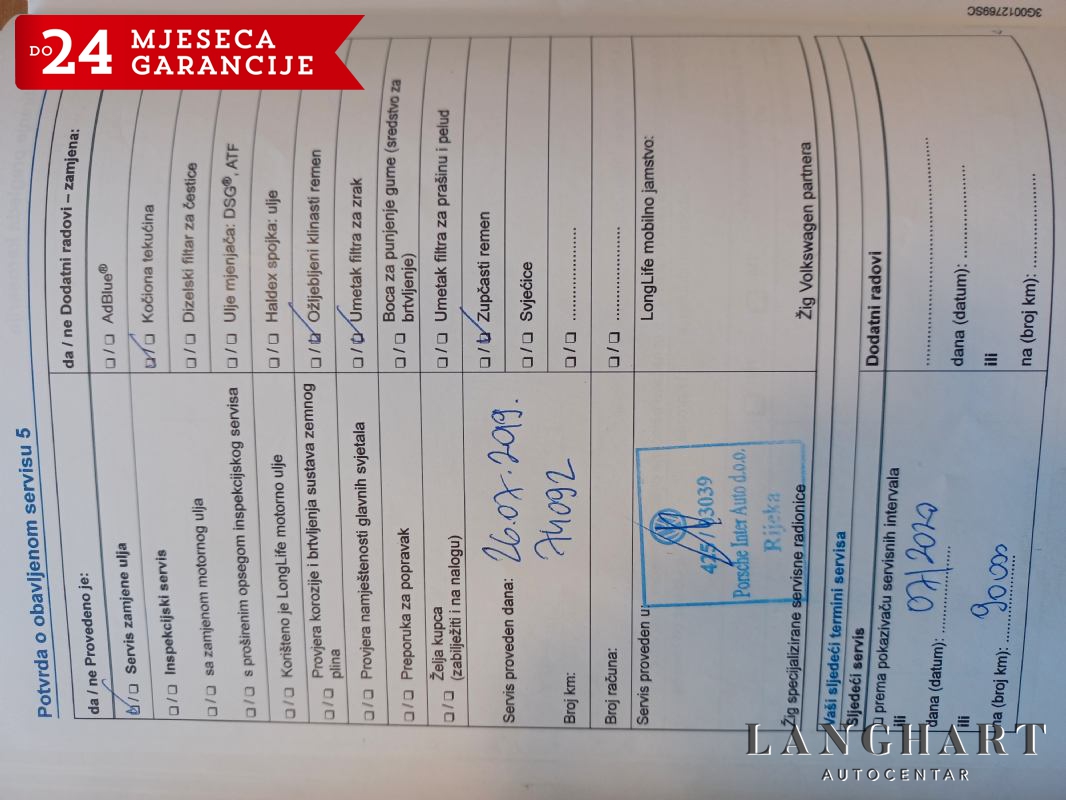 DO 24 MJESECA
GARANCIJE
3G0012769SC
Potvrda o obavljenom servisu 5
da / ne Provedeno je:
❏ / ❏ Servis zamjene ulja
❏ / ❏ Inspekcijski servis
❏ / ❏ sa zamjenom motornog ulja
❏ / ❏ s proširenim opsegom inspekcijskog servisa
❏ / ❏ Korišteno je LongLife motorno ulje
❏ / ❏ Provjera korozije i brtvljenja sustava zemnog
plina
❏ / ❏ Provjera namještenosti glavnih svjetala
❏ / ❏ Preporuka za popravak
❏ / ❏ Želja kupca
(zabilježiti i na nalogu)
Servis proveden dana: 26.07.2019.
Broj km: 74092
Broj računa:
Servis proveden u:
425/03039
Porsche Inter Auto d.o.o.
Rijeka
Žig specijalizirane servisne radionice
da / ne Dodatni radovi – zamjena:
❏ / ❏ AdBlue®
❏ / ❏ Kočiona tekućina
❏ / ❏ Dizelski filtar za čestice
❏ / ❏ Ulje mjenjača: DSG®, ATF
❏ / ❏ Haldex spojka: ulje
❏ / ❏ Ožljebljeni klinasti remen
❏ / ❏ Umetak filtra za zrak
❏ / ❏ Boca za punjenje gume (sredstvo za
brtvljenje)
❏ / ❏ Umetak filtra za prašinu i pelud
❏ / ❏ Zupčasti remen
❏ / ❏ Svjećice
❏ / ❏ ......................
❏ / ❏ ......................
LongLife mobilno jamstvo:
Žig Volkswagen partnera
Vaši sljedeći termini servisa
Sljedeći servis
prema pokazivaču servisnih intervala
ili
dana (datum): 07/2020
ili
na (broj km): 90 000
Dodatni radovi
......................
dana (datum): ......................
ili
na (broj km): ......................
LANGHART
AUTOCENTAR